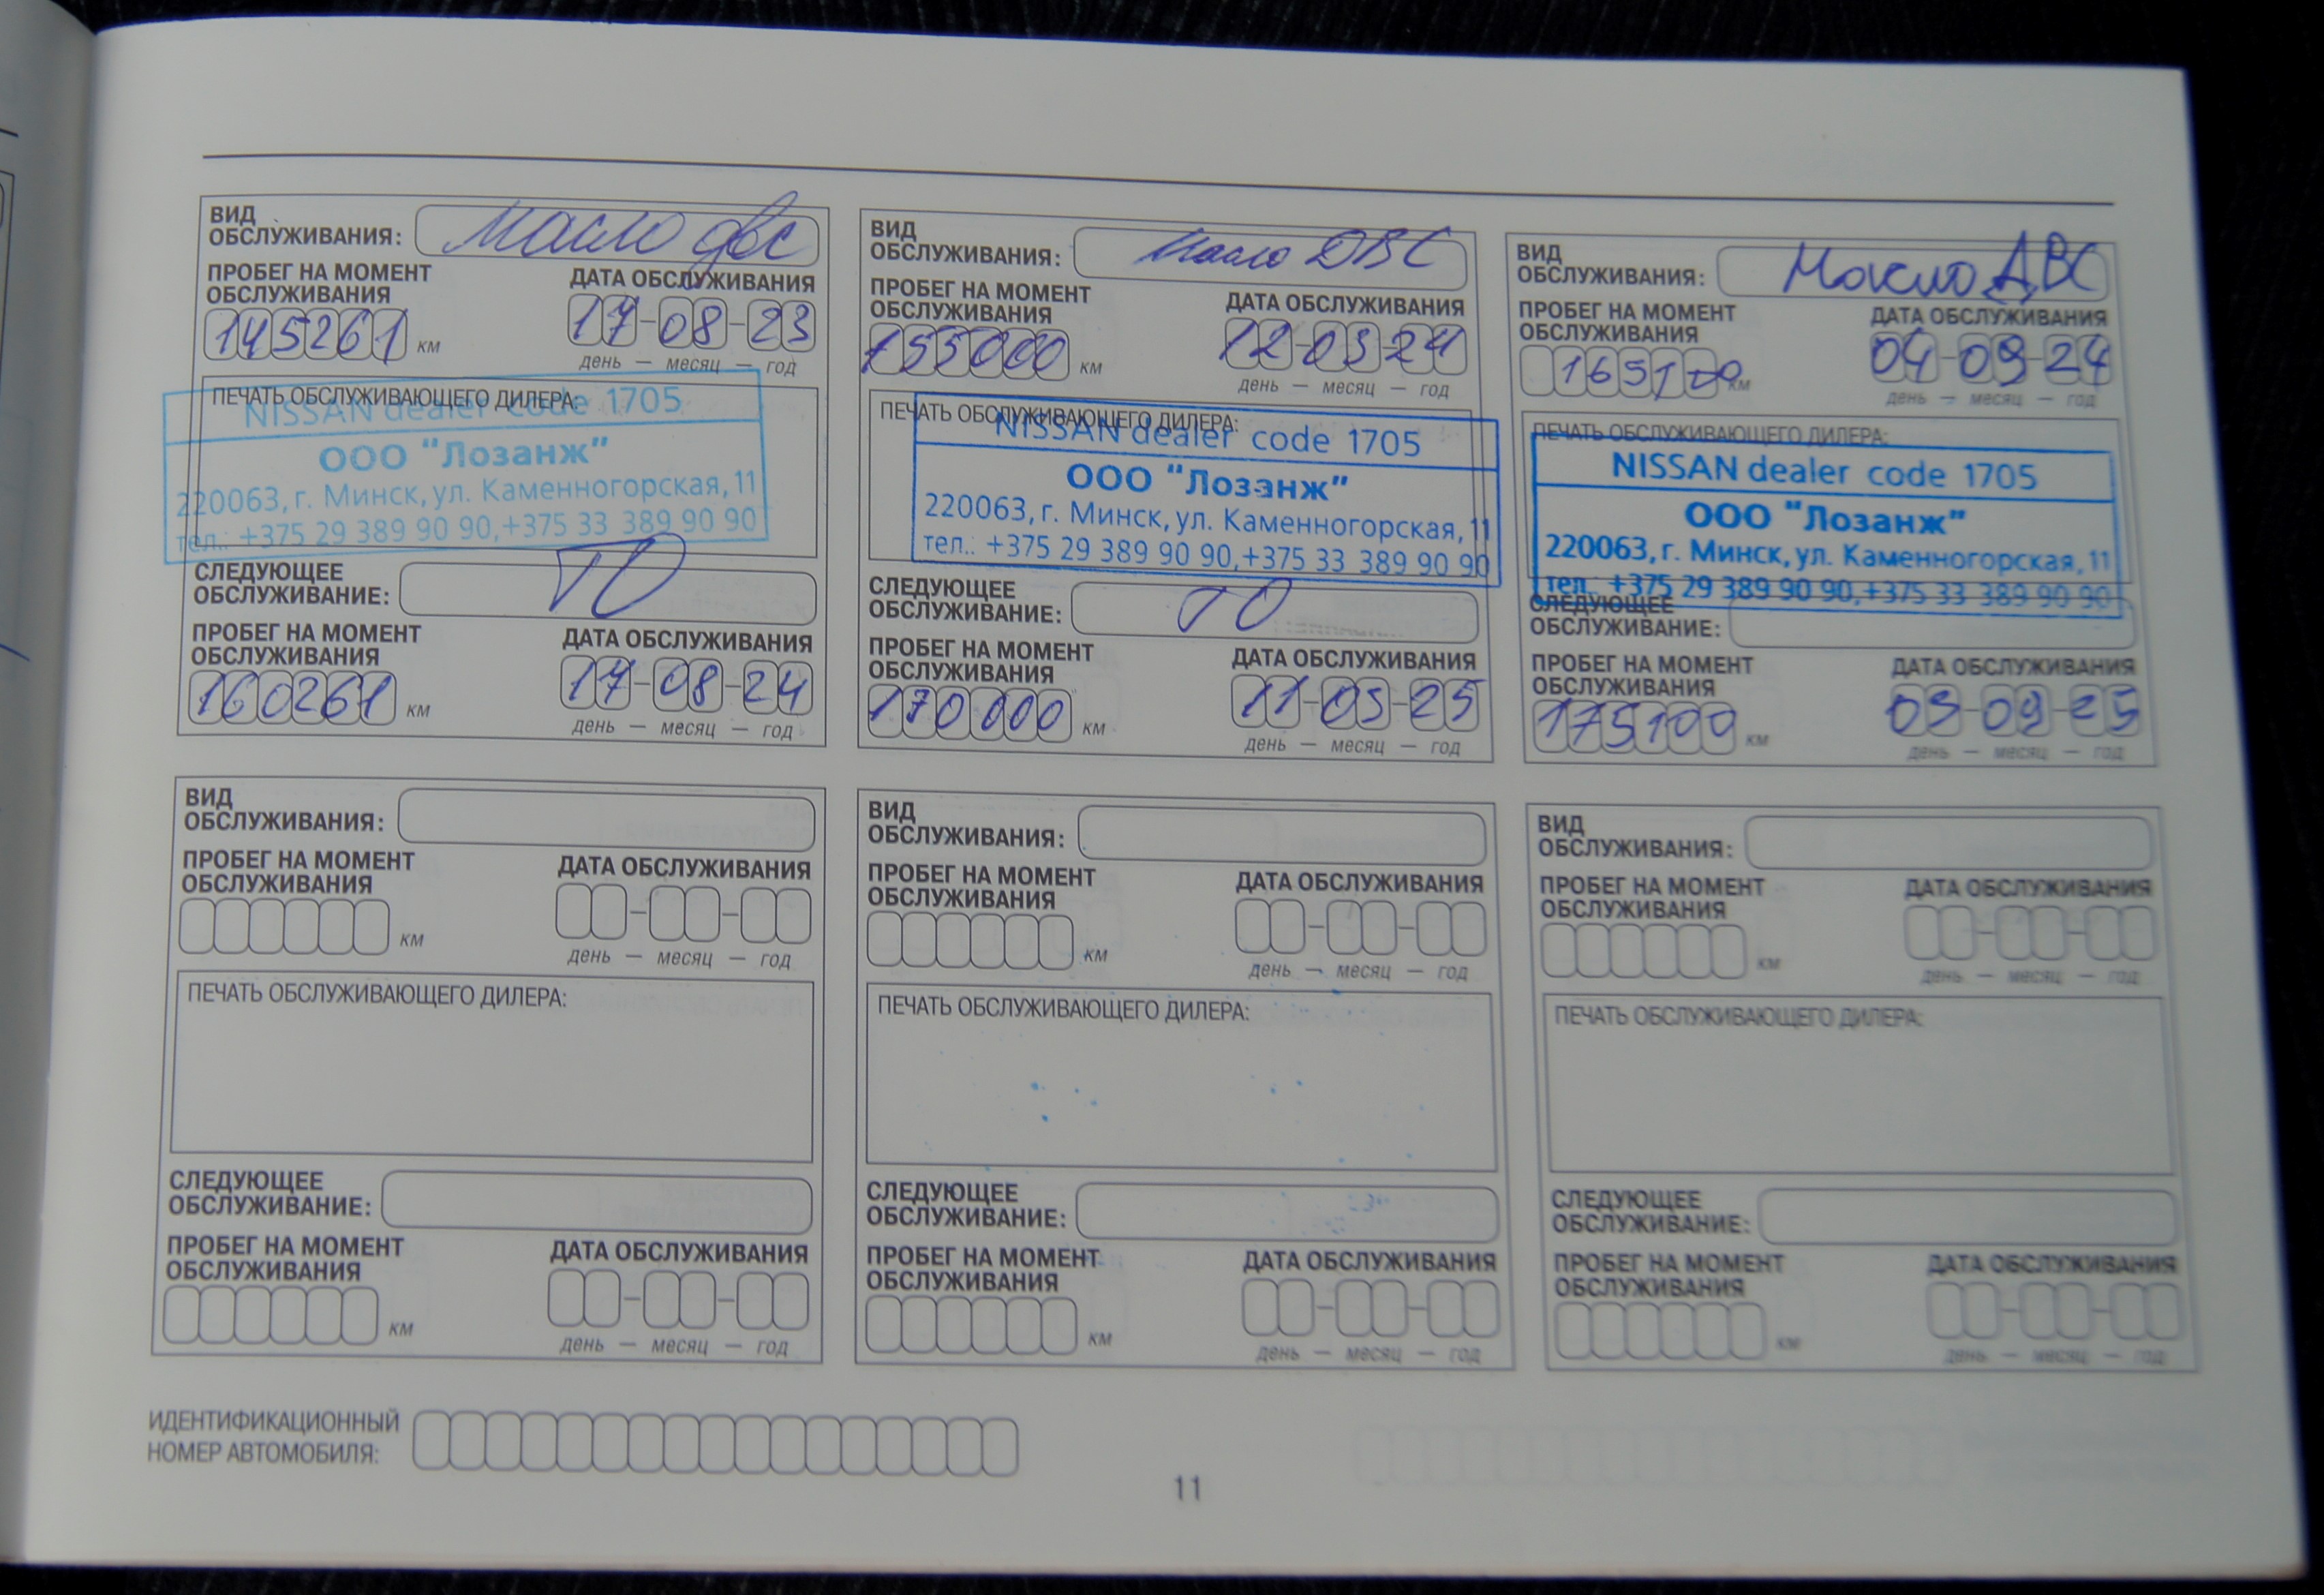 ВИД
ОБСЛУЖИВАНИЯ: Масло двс
ПРОБЕГ НА МОМЕНТ
ОБСЛУЖИВАНИЯ
ДАТА ОБСЛУЖИВАНИЯ
145261 км
17-08-23
день — месяц — год
ПЕЧАТЬ ОБСЛУЖИВАЮЩЕГО ДИЛЕРА:
NISSAN dealer code 1705
ООО "Лозанж"
220063, г. Минск, ул. Каменногорская, 11
тел.: +375 29 389 90 90, +375 33 389 90 90
СЛЕДУЮЩЕЕ
ОБСЛУЖИВАНИЕ: ТО
ПРОБЕГ НА МОМЕНТ
ОБСЛУЖИВАНИЯ
ДАТА ОБСЛУЖИВАНИЯ
160261 км
17-08-24
день — месяц — год
ВИД
ОБСЛУЖИВАНИЯ: Масло ДВС
ПРОБЕГ НА МОМЕНТ
ОБСЛУЖИВАНИЯ
ДАТА ОБСЛУЖИВАНИЯ
155000 км
12-03-24
день — месяц — год
ПЕЧАТЬ ОБСЛУЖИВАЮЩЕГО ДИЛЕРА:
NISSAN dealer code 1705
ООО "Лозанж"
220063, г. Минск, ул. Каменногорская, 11
тел.: +375 29 389 90 90, +375 33 389 90 90
СЛЕДУЮЩЕЕ
ОБСЛУЖИВАНИЕ: ТО
ПРОБЕГ НА МОМЕНТ
ОБСЛУЖИВАНИЯ
ДАТА ОБСЛУЖИВАНИЯ
170000 км
11-03-25
день — месяц — год
ВИД
ОБСЛУЖИВАНИЯ: Масло ДВС
ПРОБЕГ НА МОМЕНТ
ОБСЛУЖИВАНИЯ
ДАТА ОБСЛУЖИВАНИЯ
165100 км
04-09-24
день — месяц — год
ПЕЧАТЬ ОБСЛУЖИВАЮЩЕГО ДИЛЕРА:
NISSAN dealer code 1705
ООО "Лозанж"
220063, г. Минск, ул. Каменногорская, 11
тел.: +375 29 389 90 90, +375 33 389 90 90
СЛЕДУЮЩЕЕ
ОБСЛУЖИВАНИЕ:
ПРОБЕГ НА МОМЕНТ
ОБСЛУЖИВАНИЯ
ДАТА ОБСЛУЖИВАНИЯ
175100 км
03-09-25
день — месяц — год
ВИД
ОБСЛУЖИВАНИЯ:
ПРОБЕГ НА МОМЕНТ
ОБСЛУЖИВАНИЯ
ДАТА ОБСЛУЖИВАНИЯ
км
день — месяц — год
ПЕЧАТЬ ОБСЛУЖИВАЮЩЕГО ДИЛЕРА:
СЛЕДУЮЩЕЕ
ОБСЛУЖИВАНИЕ:
ПРОБЕГ НА МОМЕНТ
ОБСЛУЖИВАНИЯ
ДАТА ОБСЛУЖИВАНИЯ
км
день — месяц — год
ВИД
ОБСЛУЖИВАНИЯ:
ПРОБЕГ НА МОМЕНТ
ОБСЛУЖИВАНИЯ
ДАТА ОБСЛУЖИВАНИЯ
км
день — месяц — год
ПЕЧАТЬ ОБСЛУЖИВАЮЩЕГО ДИЛЕРА:
СЛЕДУЮЩЕЕ
ОБСЛУЖИВАНИЕ:
ПРОБЕГ НА МОМЕНТ
ОБСЛУЖИВАНИЯ
ДАТА ОБСЛУЖИВАНИЯ
км
день — месяц — год
ВИД
ОБСЛУЖИВАНИЯ:
ПРОБЕГ НА МОМЕНТ
ОБСЛУЖИВАНИЯ
ДАТА ОБСЛУЖИВАНИЯ
км
день — месяц — год
ПЕЧАТЬ ОБСЛУЖИВАЮЩЕГО ДИЛЕРА:
СЛЕДУЮЩЕЕ
ОБСЛУЖИВАНИЕ:
ПРОБЕГ НА МОМЕНТ
ОБСЛУЖИВАНИЯ
ДАТА ОБСЛУЖИВАНИЯ
км
день — месяц — год
ИДЕНТИФИКАЦИОННЫЙ
НОМЕР АВТОМОБИЛЯ:
11